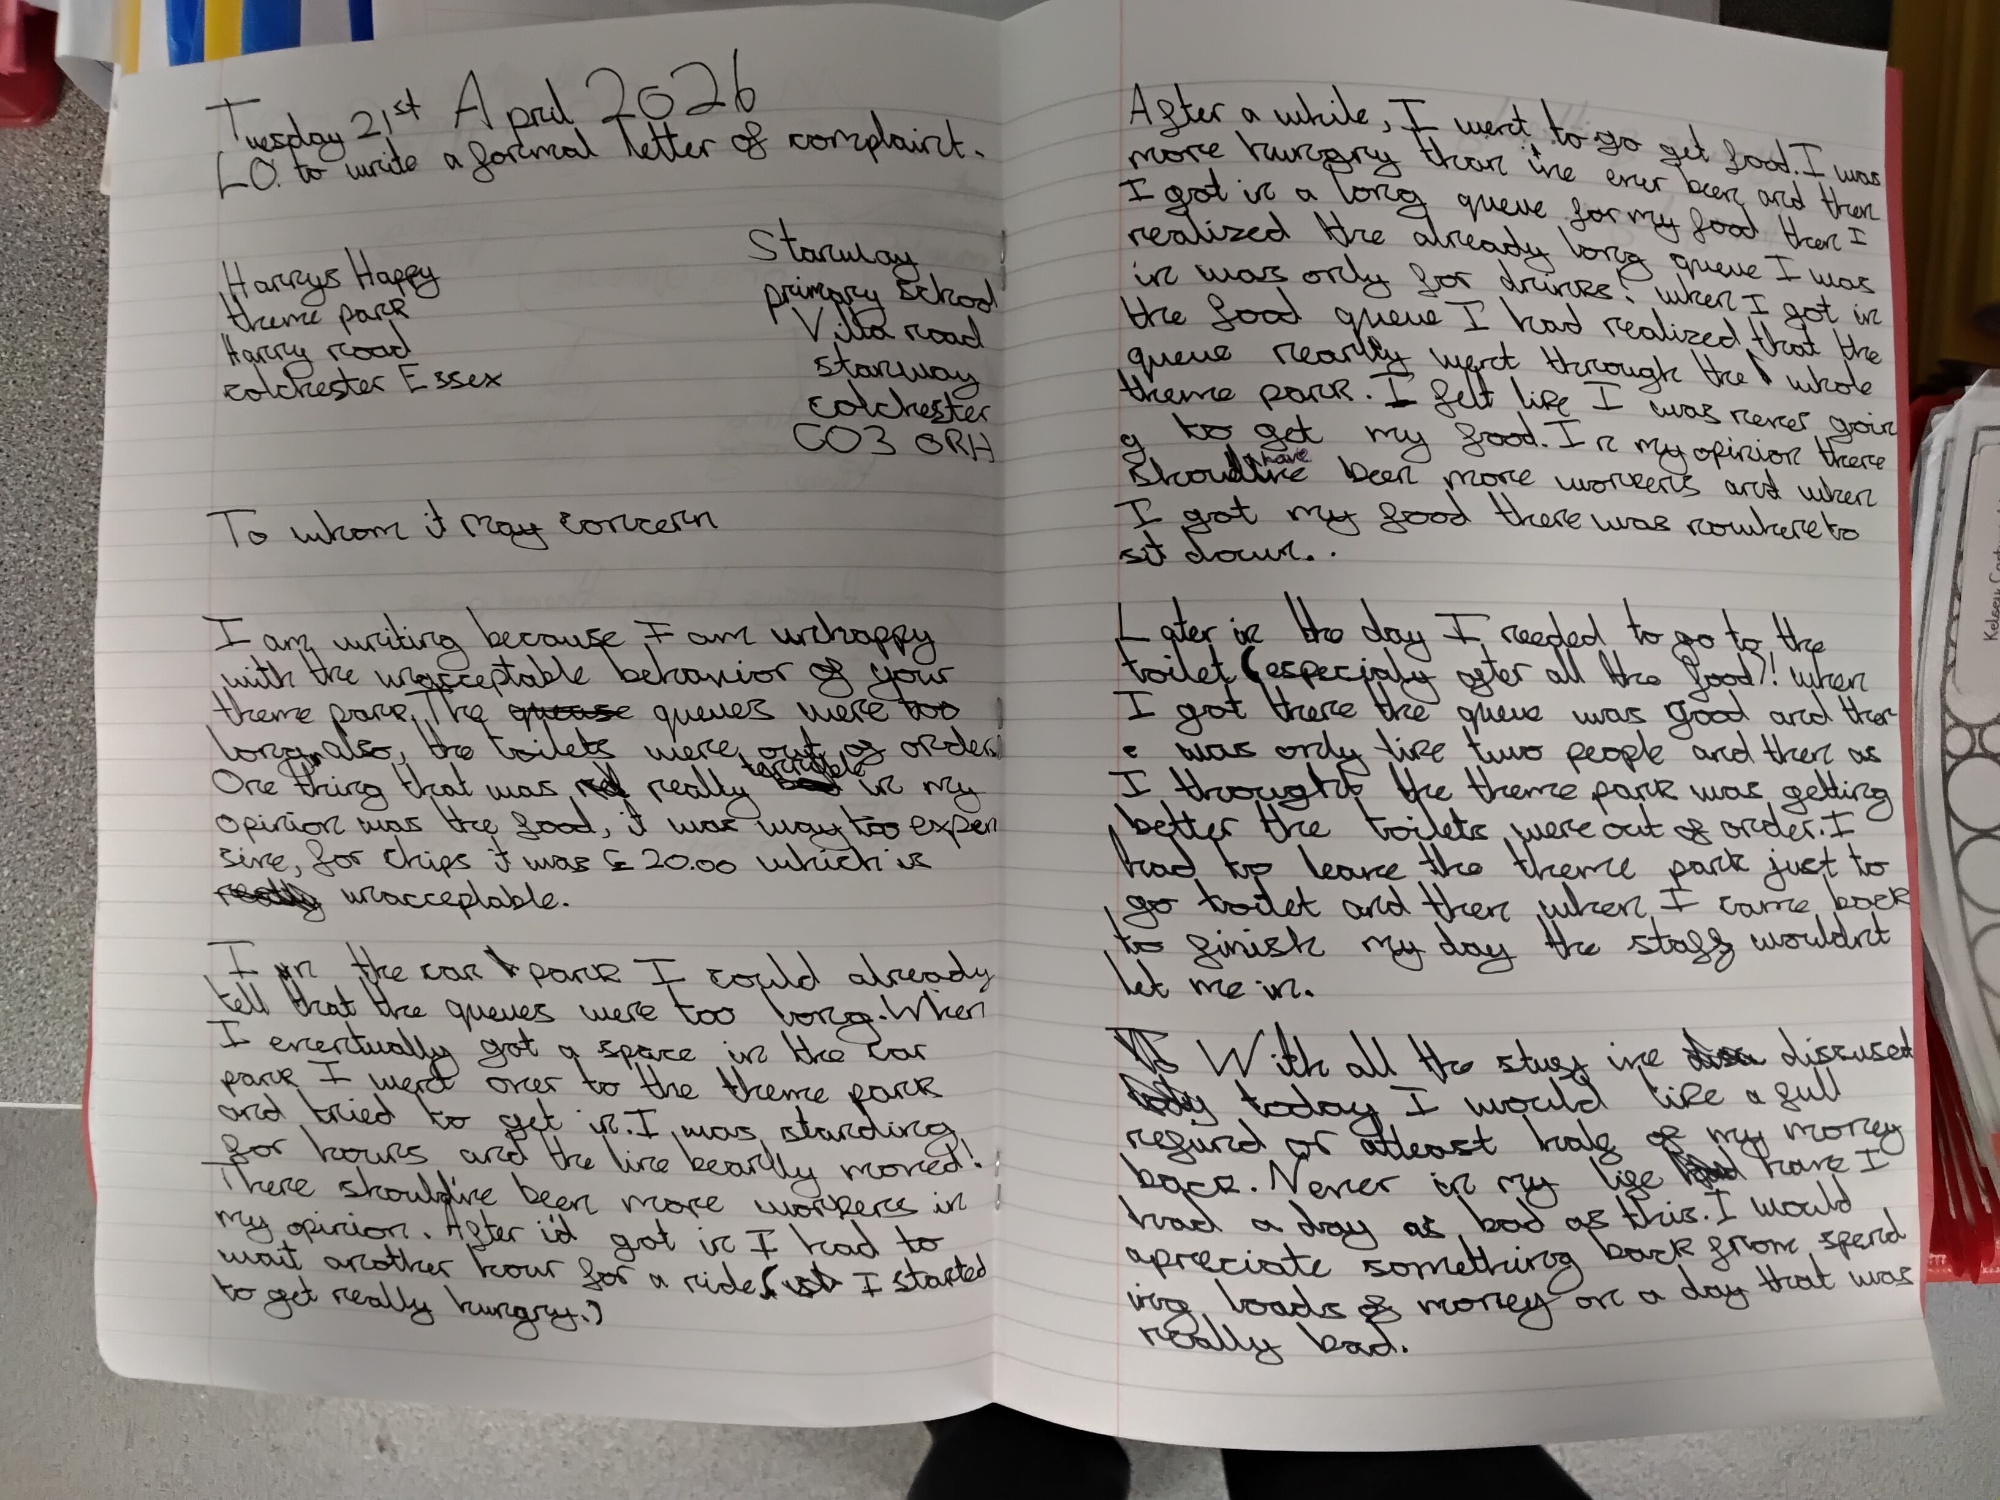 Tuesday 21st April 2026
LO. to write a formal letter of complaint.
Harrys Happy
theme park
Harry road
colchester Essex
Stanway
primary school
Villa road
stanway
colchester
CO3 0RH
To whom it may concern
I am writing because I am unhappy
with the unacceptable behavior of your
theme park. The queues were too
long, also, the toilets were out of order.
One thing that was really terrible in my
opinion was the food, it was way too expen
sive, for chips it was £20.00 which is
really unacceptable.
In the car park I could already
tell that the queues were too long. When
I eventually got a space in the car
park I went over to the theme park
and tried to get in. I was standing
for hours and the line bearlly moved!
There should've been more workers in
my opinion. After i'd got in I had to
wait another hour for a ride, (ust I started
to get really hungry.)
After a while, I went to go get food. I was
more hungry than i've ever been and then
I got in a long queue for my food then I
realized the already long queue I was
in was only for drinks! when I got in
the food queue I had realized that the
queue nearlly went through the whole
theme park. I felt like I was never goin
g to get my food. In my opinion there
should have been more workers and when
I got my food there was nowhere to
sit down..
Later in the day I needed to go to the
toilet (especialy after all the food)! when
I got there the queue was good and ther
e was only like two people and then as
I thought the theme park was getting
better the toilets were out of order. I
had to leave the theme park just to
go toilet and then when I came back
to finish my day the staff wouldnt
let me in.
With all the stuff ive discused
today I would like a full
refund or atleast half of my money
back. Never in my life have I
had a day as bad as this. I would
apreciate something back from spend
ing loads of money on a day that was
really bad.
Kelsey